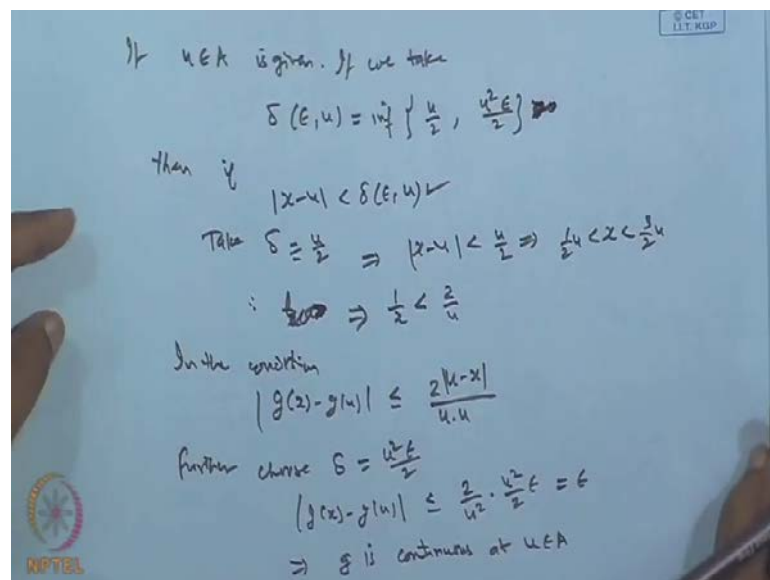 © CET
I.I.T. KGP
If u ∈ A is given. If we take
δ(ε, u) = inf { u/2, u²ε/2 }
then if
|x-u| < δ(ε, u)
Take δ = u/2 ⇒ |x-u| < u/2 ⇒ 1/2 u < x < 3/2 u
∴ ⇒ 1/x < 2/u
In the condition
|g(x) - g(u)| ≤ 2|u-x| / u.u
further choose δ = u²ε/2
|g(x) - g(u)| ≤ 2/u² · u²/2 ε = ε
⇒ g is continuous at u ∈ A
NPTEL